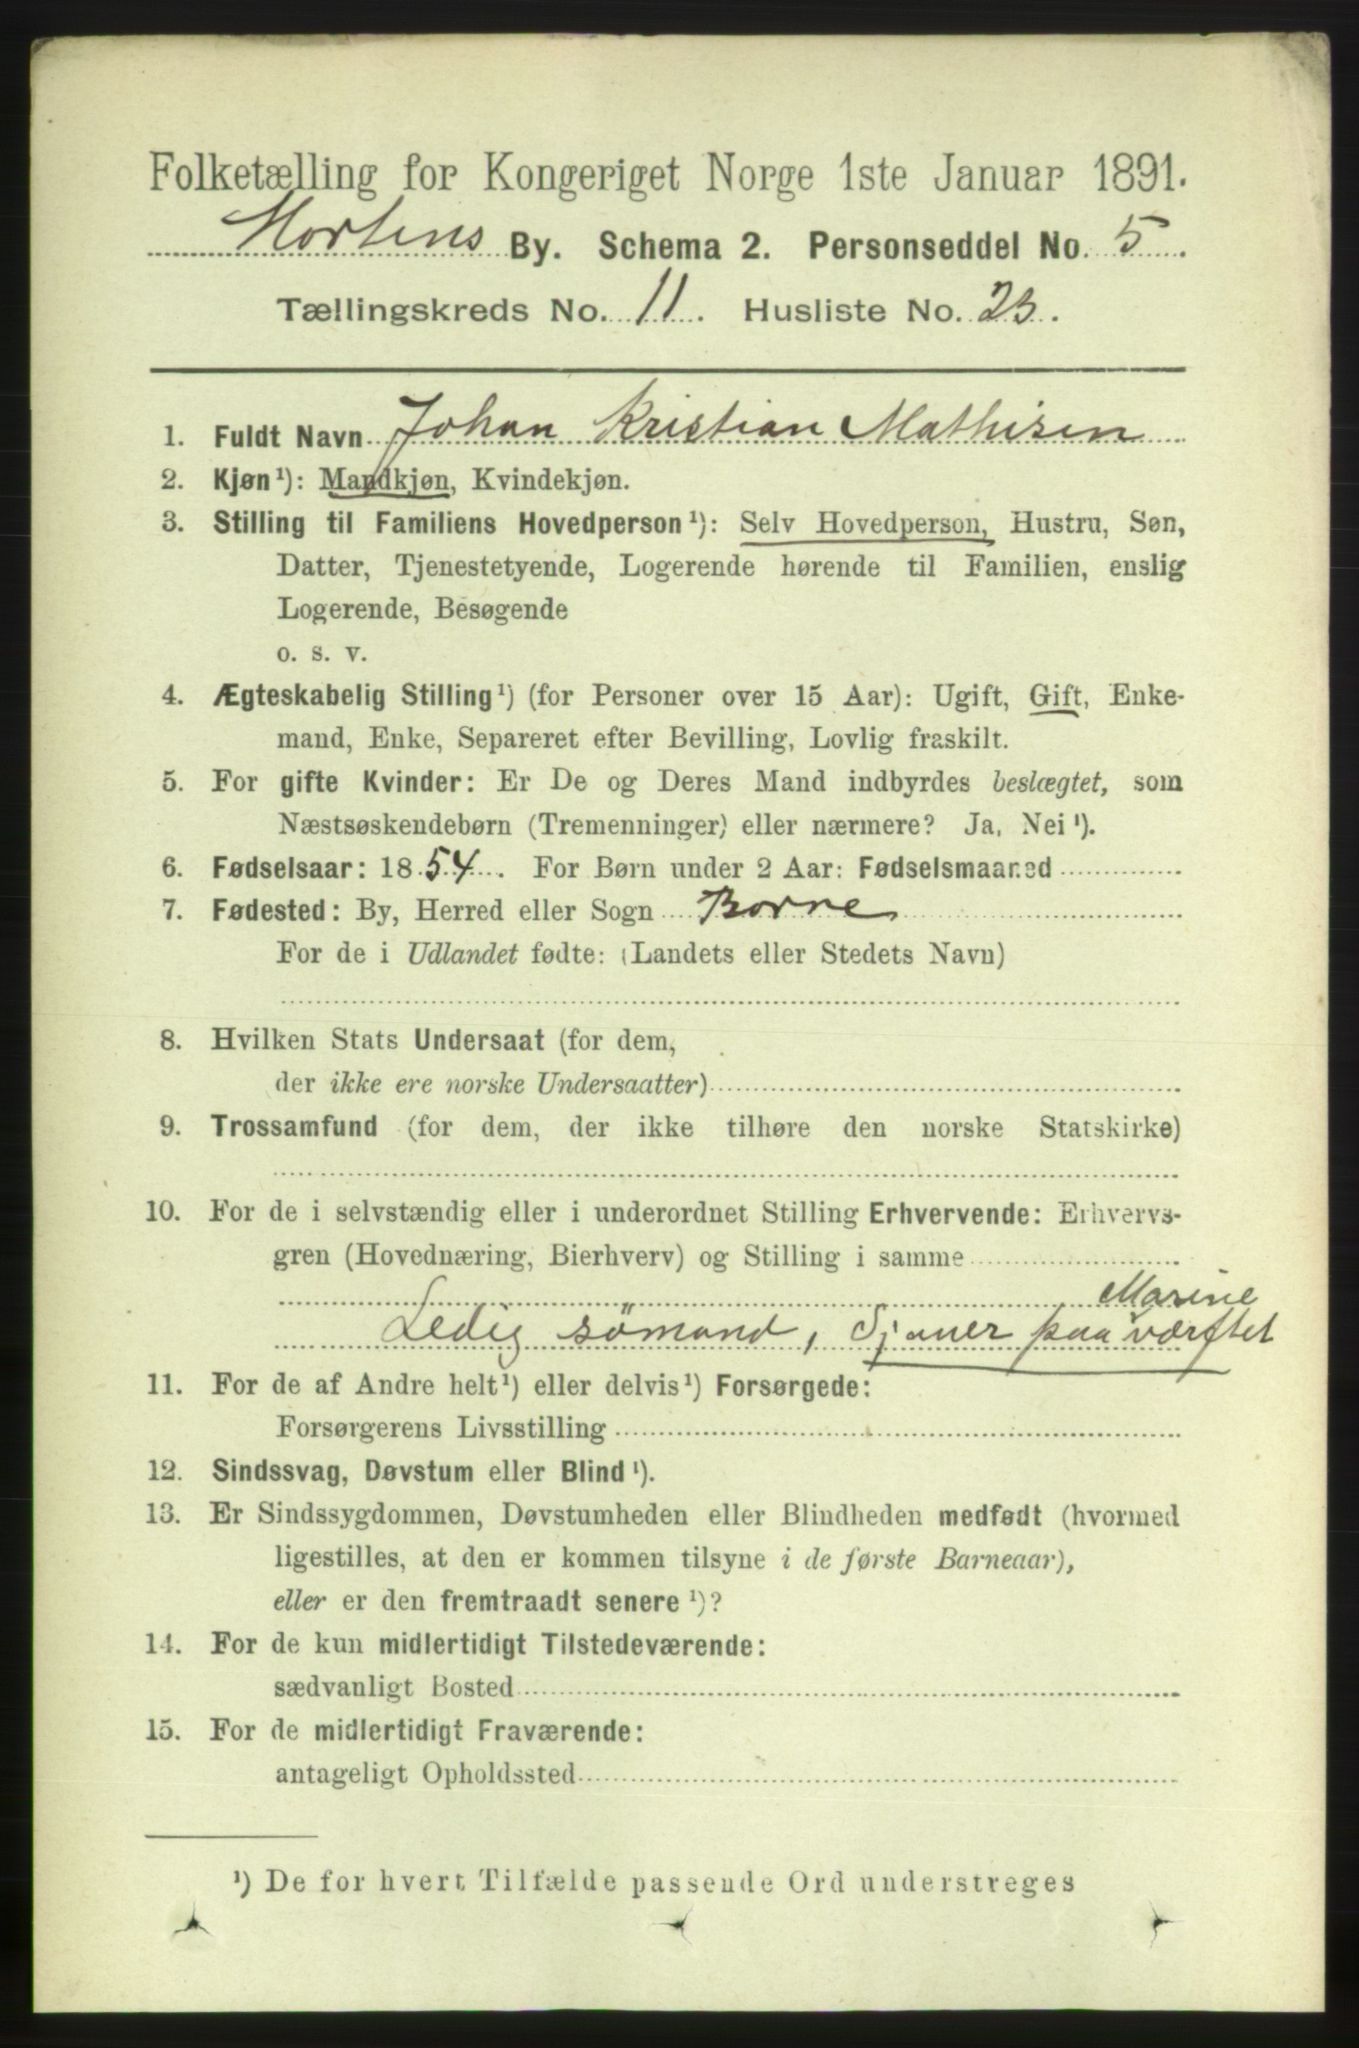 Folketælling for Kongeriget Norge 1ste Januar 1891.
Hortens By. Schema 2. Personseddel No. 5.
Tællingskreds No. 11. Husliste No. 23.
1. Fuldt Navn Johan Kristian Mathisen
2. Kjøn¹): Mandkjøn, Kvindekjøn.
3. Stilling til Familiens Hovedperson¹): Selv Hovedperson, Hustru, Søn,
Datter, Tjenestetyende, Logerende hørende til Familien, enslig
Logerende, Besøgende
o. s. v.
4. Ægteskabelig Stilling¹) (for Personer over 15 Aar): Ugift, Gift, Enke-
mand, Enke, Separeret efter Bevilling, Lovlig fraskilt.
5. For gifte Kvinder: Er De og Deres Mand indbyrdes beslægtet, som
Næstsøskendebørn (Tremenninger) eller nærmere? Ja, Nei¹).
6. Fødselsaar: 1854. For Børn under 2 Aar: Fødselsmaaned
7. Fødested: By, Herred eller Sogn Borre
For de i Udlandet fødte: (Landets eller Stedets Navn)
8. Hvilken Stats Undersaat (for dem,
der ikke ere norske Undersaatter)
9. Trossamfund (for dem, der ikke tilhøre den norske Statskirke)
10. For de i selvstændig eller i underordnet Stilling Erhvervende: Erhvervs-
gren (Hovednæring, Bierhverv) og Stilling i samme
Marine
Ledig sømand, Sjauer paa værftet
11. For de af Andre helt¹) eller delvis¹) Forsørgede:
Forsørgerens Livsstilling
12. Sindssvag, Døvstum eller Blind¹).
13. Er Sindssygdommen, Døvstumheden eller Blindheden medfødt (hvormed
ligestilles, at den er kommen tilsyne i de første Barneaar),
eller er den fremtraadt senere¹)?
14. For de kun midlertidigt Tilstedeværende:
sædvanligt Bosted
15. For de midlertidigt Fraværende:
antageligt Opholdssted
¹) De for hvert Tilfælde passende Ord understreges